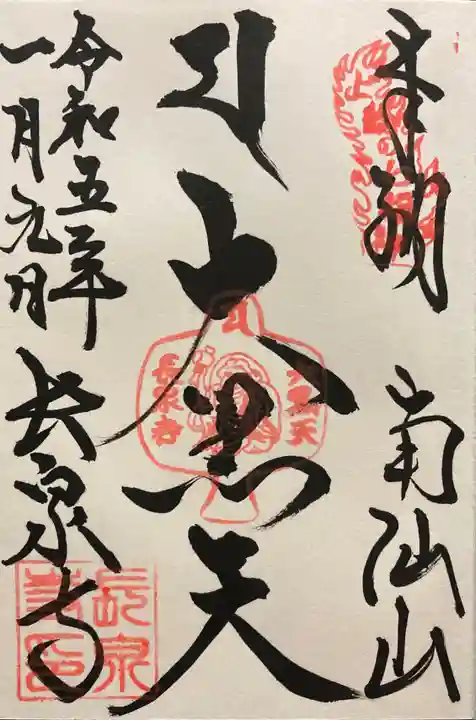 奉納
南仙山
大黒天
令和五年
一月元日
長泉寺
大黒天
長泉寺
長泉寺印